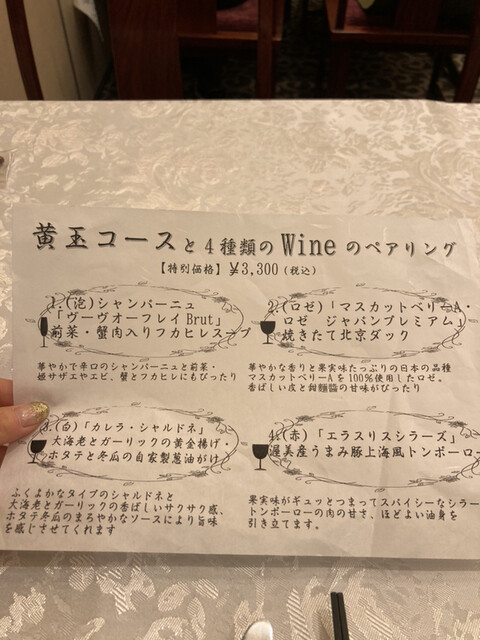 黄玉コースと4種類のWineのペアリング
【特別価格】¥3,300(税込)
1.(泡)シャンパーニュ
「ヴーヴオーフレイBrut」
前菜・蟹肉入りフカヒレスープ
華やかで辛口のシャンパーニュと前菜・
姫サザエやエビ、蟹とフカヒレにもぴったり
2.(ロゼ)「マスカットベリーA・
ロゼ ジャパンプレミアム」
焼きたて北京ダック
華やかな香りと果実味たっぷりの日本の品種
マスカットベリーAを100%使用したロゼ。
香ばしい皮と甜麺醤の甘味がぴったり
3.(白)「カレラ・シャルドネ」
大海老とガーリックの黄金揚げ・
ホタテと冬瓜の自家製葱油がけ
ふくよかなタイプのシャルドネと
大海老とガーリックの香ばしいサクサク感、
ホタテ冬瓜のまろやかなソースにより旨味
を感じさせてくれます
4.(赤)「エラスリスシラーズ」
渥美産うまみ豚上海風トンポーロー
果実味がギュッとつまってスパイシーなシラー
トンポーローの肉の甘さ、ほどよい油身を
引き立てます。